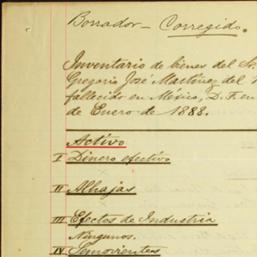 Borrador - Corregido.
Inventario de bienes del Sr.
Gregorio José Martínez del
fallecido en México, D. F. en
de Enero de 1888.
Activo
I Dinero efectivo
II Alhajas
III Efectos de Industria
Ningunos.
IV Semovientes